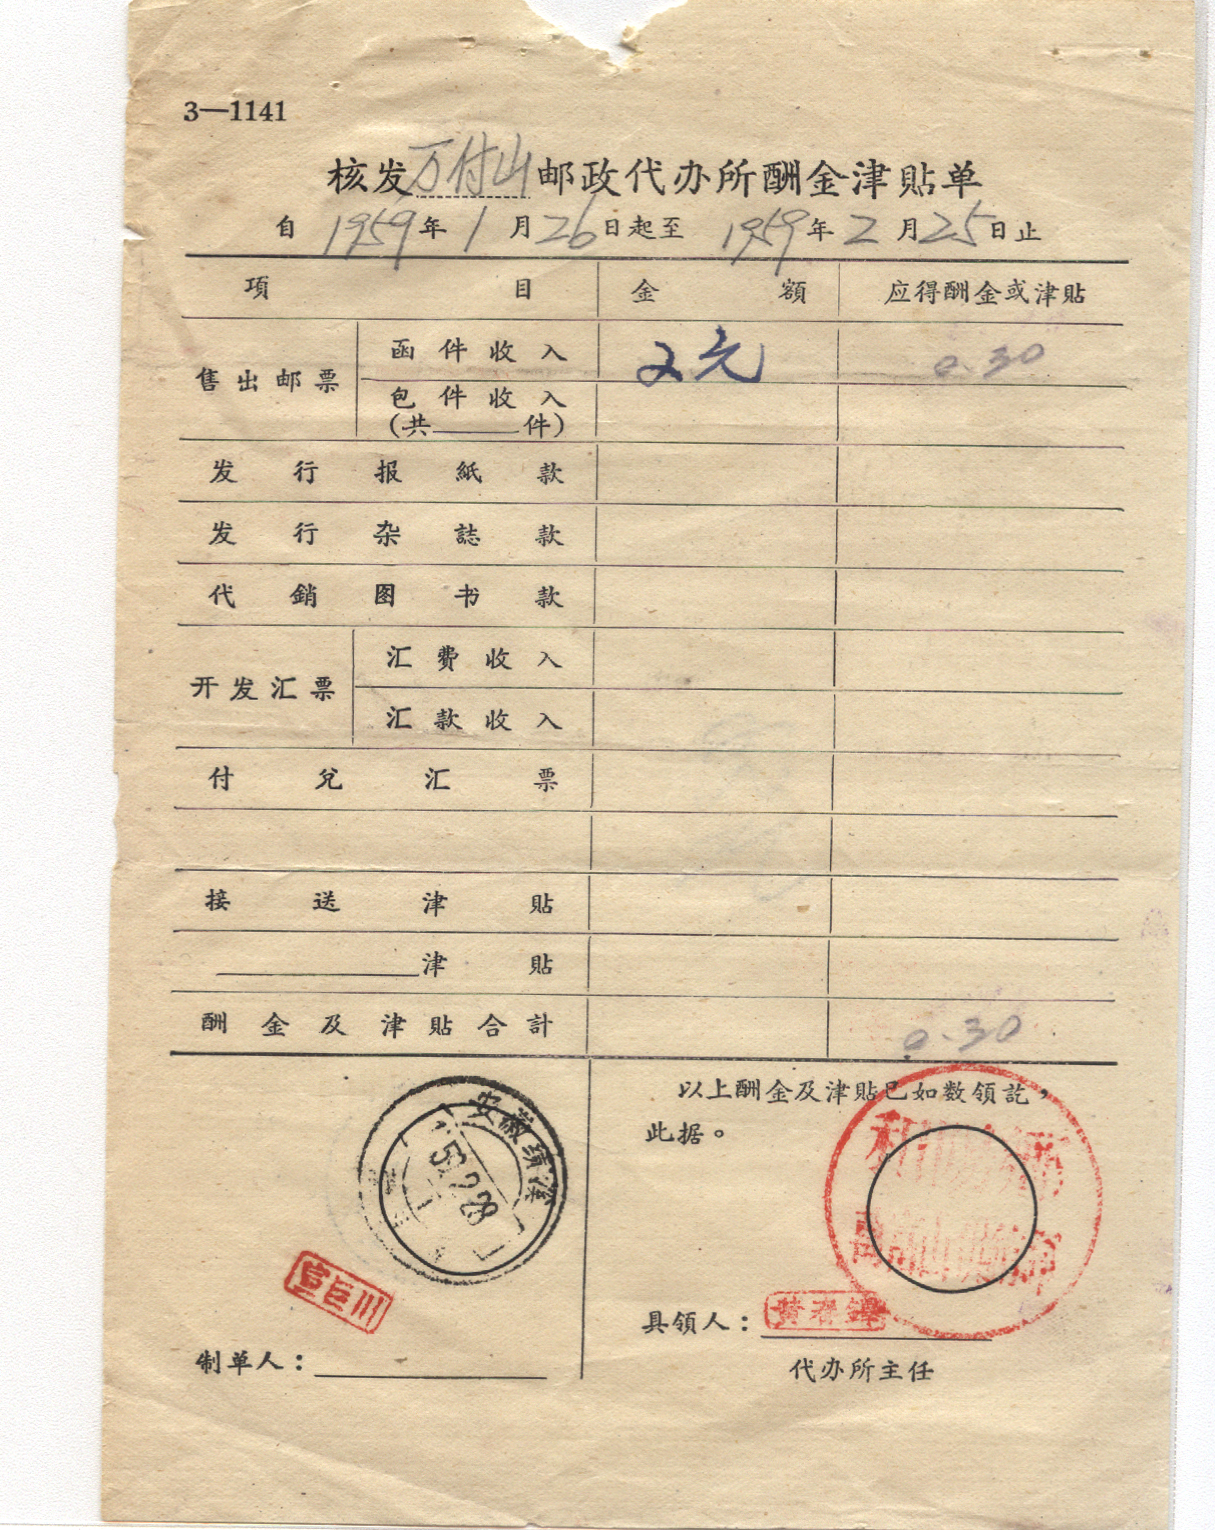 3—1141
核发万付山邮政代办所酬金津貼单
自1959年1月26日起至1959年2月25日止
項目 金額 应得酬金或津貼
售出邮票 函件收入 2元 0.30
包件收入
(共____件)
发行报紙款
发行杂誌款
代銷图书款
开发汇票 汇費收入
汇款收入
付兌汇票
接送津貼
____津貼
酬金及津貼合計 0.30
以上酬金及津貼已如数領訖，
此据。
安徽绩溪
宣巨川
具領人：
制单人：
代办所主任